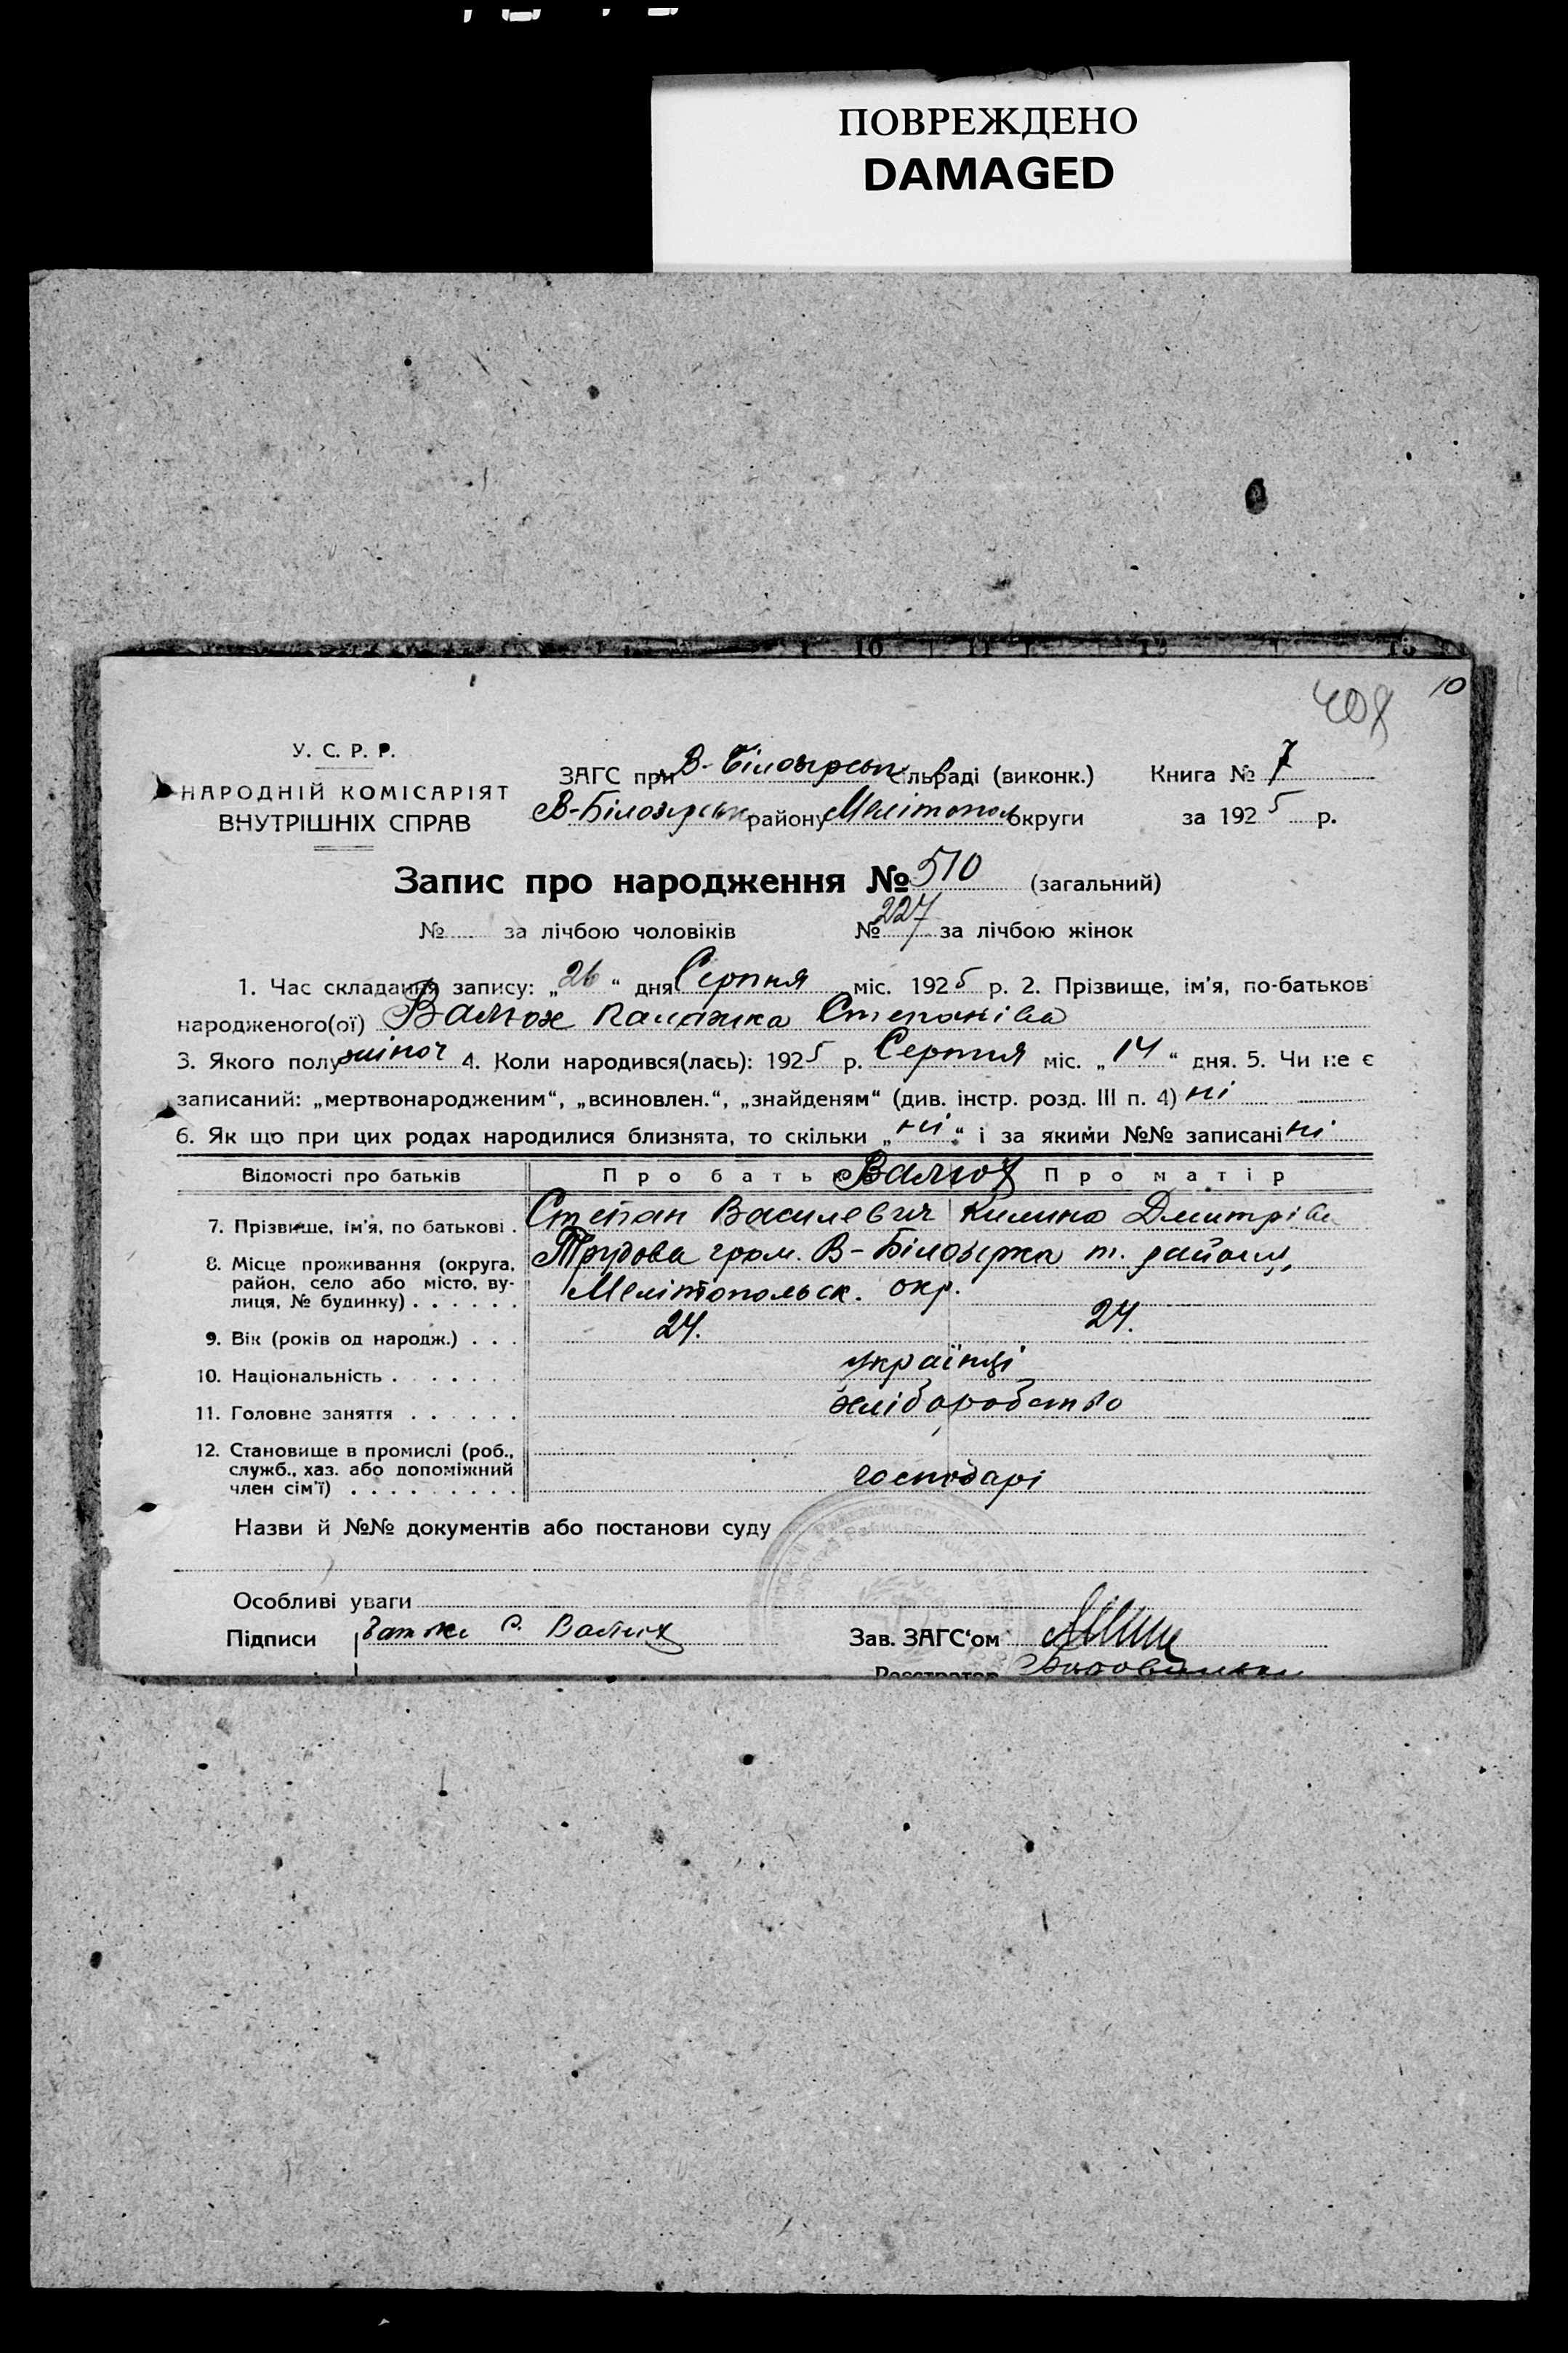 ПОВРЕЖДЕНО
DAMAGED
10 11 12 13
10
У. С. Р. Р.
НАРОДНІЙ КОМІСАРІЯТ
ВНУТРІШНІХ СПРАВ
ЗАГС при В-Білозірськ сільраді (виконк.) Книга № 7
В-Білозірськ району Мелітополь округи за 1925 р.
Запис про народження № 510 (загальний)
№ за лічбою чоловіків № 227 за лічбою жінок
1. Час складання запису: „26“ дня Серпня міс. 1925 р. 2. Прізвище, ім'я, по-батьков
народженого(ої) Валюх Палажка Степанівна
3. Якого полу жіноч 4. Коли народився(лась): 1925 р. Серпня міс. „14“ дня. 5. Чи не є
записаний: „мертвонародженим“, „всиновлен.“, „знайденям“ (див. інстр. розд. III п. 4) ні
6. Як що при цих родах народилися близнята, то скільки „ні“ і за якими №№ записані ні
Відомості про батьків Про батька Валюх Про матір
7. Прізвище, ім'я, по батькові . Степан Василевич Килина Дмитрівн
8. Місце проживання (округа, район, село або місто, вулиця, № будинку) . . . . . . Трудова гром. В-Білозірка т. району,
Мелітопольськ. окр.
9. Вік (років од народж.) . . . 24. 24.
10. Національність . . . . . . . українці
11. Головне заняття . . . . . . хліборобство
12. Становище в промислі (роб., служб., хаз. або допоміжний член сім'ї) . . . . . . . . . господарі
Назви й №№ документів або постанови суду
Особливі уваги
Підписи батько С. Валюх Зав. ЗАГС'ом
Реєстратор